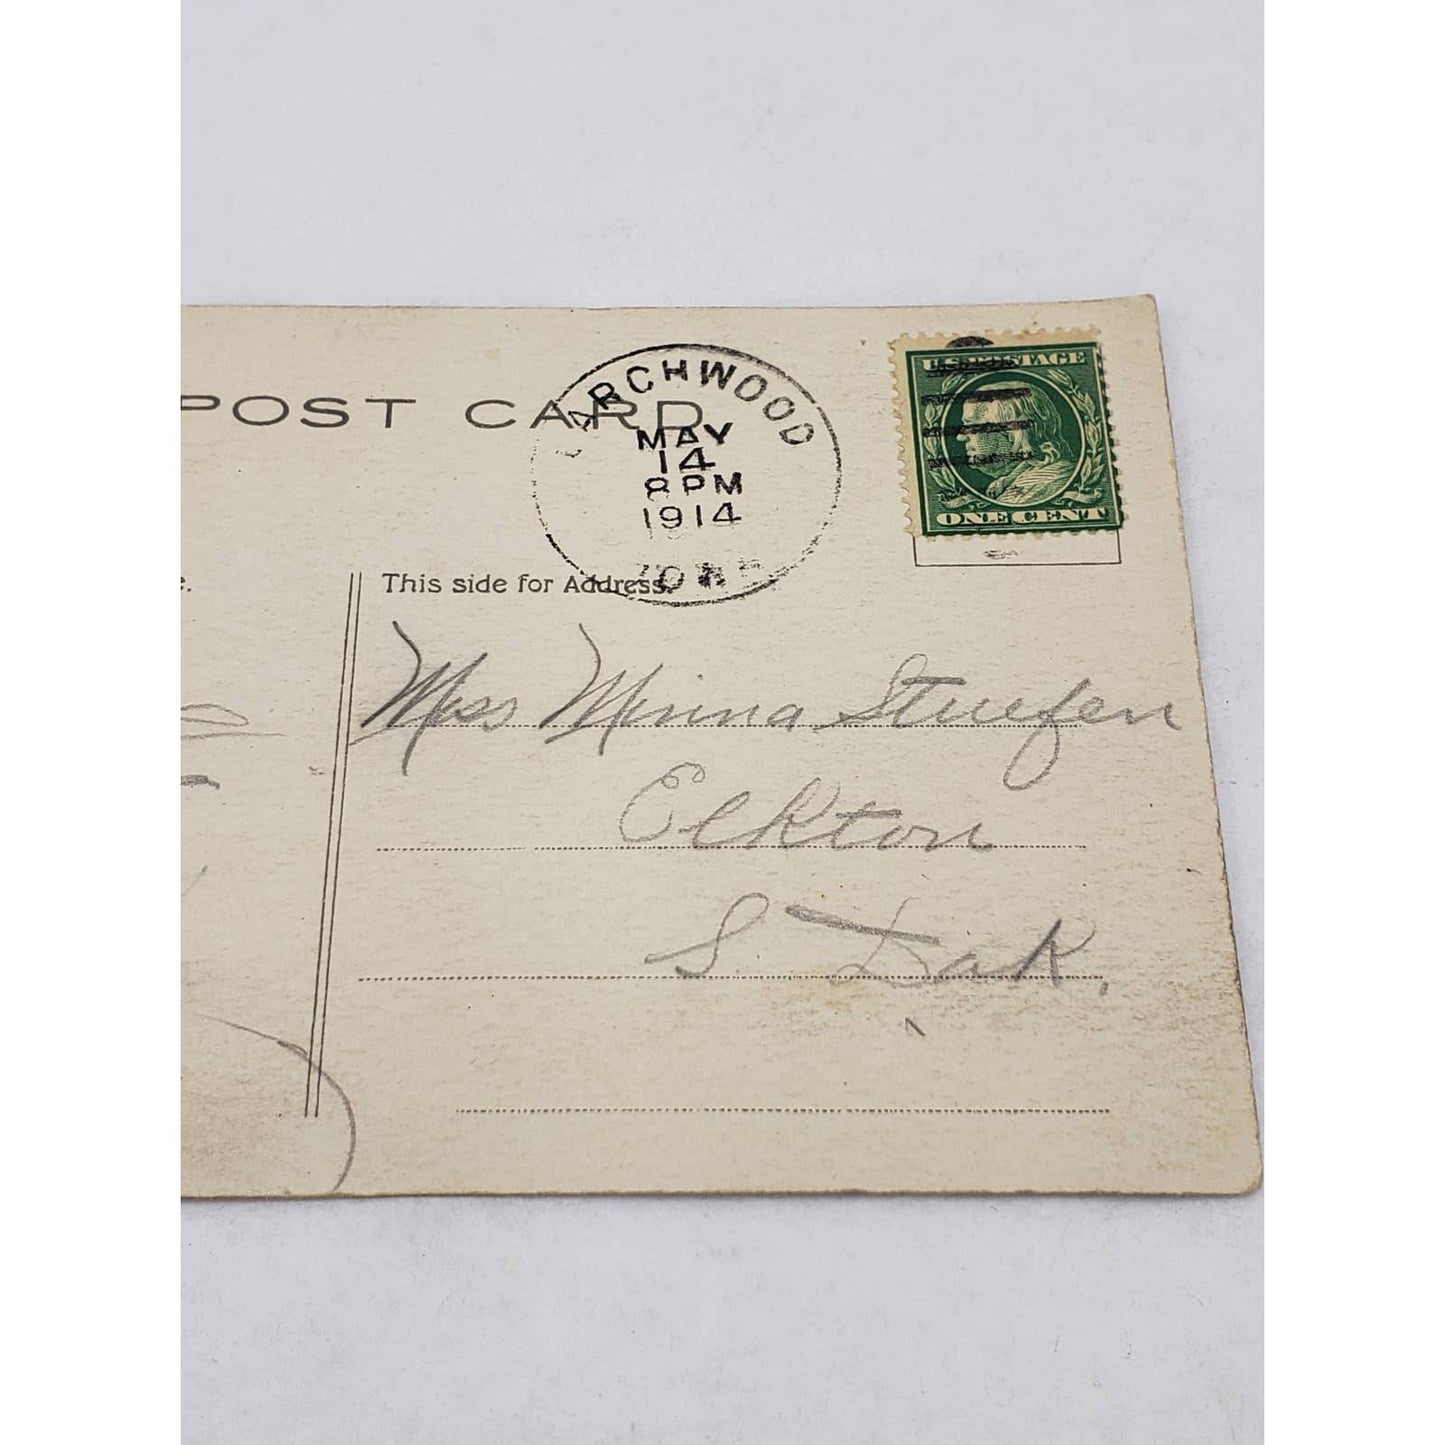 POST CARD
LARCHWOOD
MAY
14
8 PM
1914
IOWA
U.S. POSTAGE
ONE CENT
This side for Address.
Miss Minna Stuefen
Elkton
S. Dak.